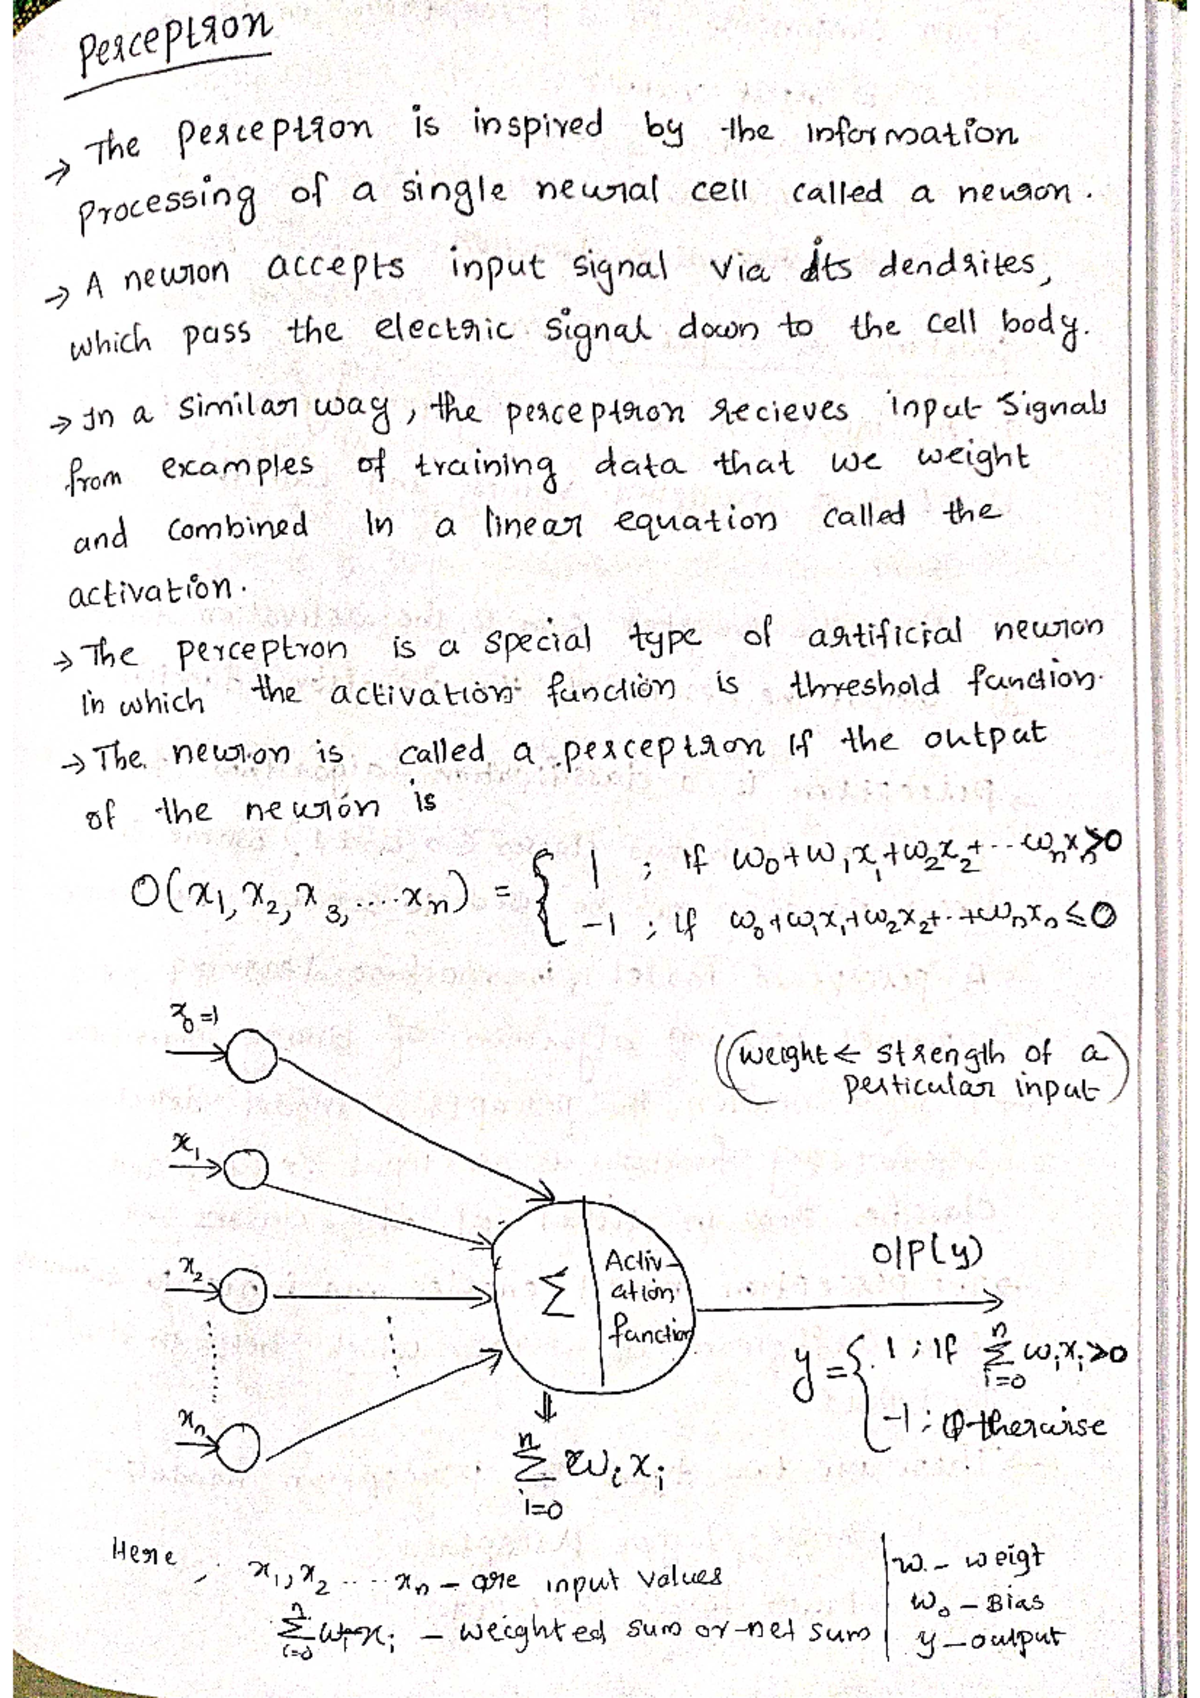 Perceptron
→ The perceptron is inspired by the information
Processing of a single neural cell called a neuron.
→ A neuron accepts input signal via its dendrites,
which pass the electric signal down to the cell body.
→ In a similar way, the perceptron recieves input signals
from examples of training data that we weight
and combined in a linear equation called the
activation.
→ The perceptron is a special type of artificial neuron
in which the activation function is threshold function.
→ The neuron is called a perceptron if the output
of the neuron is
O(x₁, x₂, x₃, ....xₙ) = { 1 ; if w₀+w₁x₁+w₂x₂+...wₙxₙ>0
-1 ; if w₀+w₁x₁+w₂x₂+..+wₙxₙ≤0
x₀=1
(weight ← strength of a
perticular input)
x₁
x₂
xₙ
Σ
Activ-
ation
function
O/P(y)
y = { 1 ; if Σ(i=0 to n) wᵢxᵢ>0
-1 ; Otherwise
⇓
Σ(i=0 to n) wᵢxᵢ
Here, x₁, x₂ .... xₙ - are input values
Σ(i=0 to n) wᵢxᵢ - weighted sum or net sum
w - weigt
w₀ - Bias
y - output